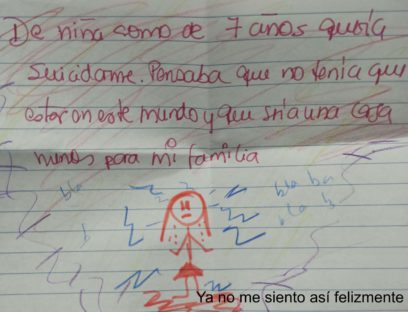 De niña como de 7 años quería
Suicidarme. Pensaba que no tenia que
estar en este mundo y que sria una carga
menos para mi familia
bla
bla bla
bla b
b
Ya no me siento así felizmente